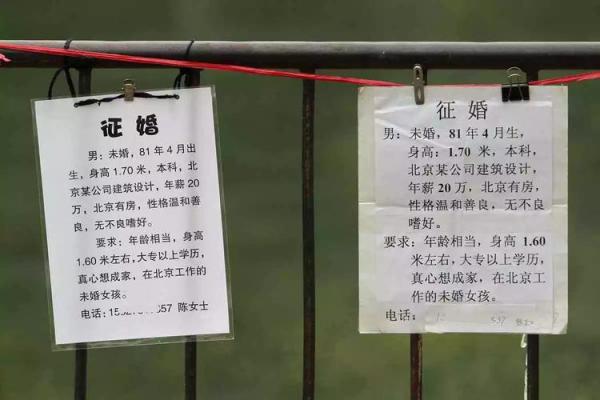 征婚
男：未婚，81年4月出
生，身高1.70米，本科，北
京某公司建筑设计，年薪20
万，北京有房，性格温和善
良，无不良嗜好。
要求：年龄相当，身高
1.60米左右，大专以上学历，
真心想成家，在北京工作的
未婚女孩。
电话：15 557 陈女士
征婚
男：未婚，81年4月生，
身高：1.70米，本科，
北京某公司建筑设计，
年薪20万，北京有房，
性格温和善良，无不良
嗜好。
要求：年龄相当，身高1.60
米左右，大专以上学历，
真心想成家，在北京工
作的未婚女孩。
电话：